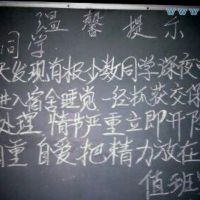 温馨提示
同学:
天发现有极少数同学深夜
进入宿舍睡觉 一经抓获交保
处理 情节严重立即开除
自重自爱把精力放在
值班